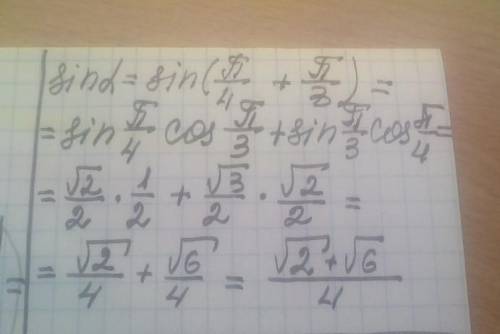 sin α = sin(π/4 + π/3) =
= sin π/4 cos π/3 + sin π/3 cos π/4 =
= √2/2 · 1/2 + √3/2 · √2/2 =
= √2/4 + √6/4 = (√2 + √6)/4
=